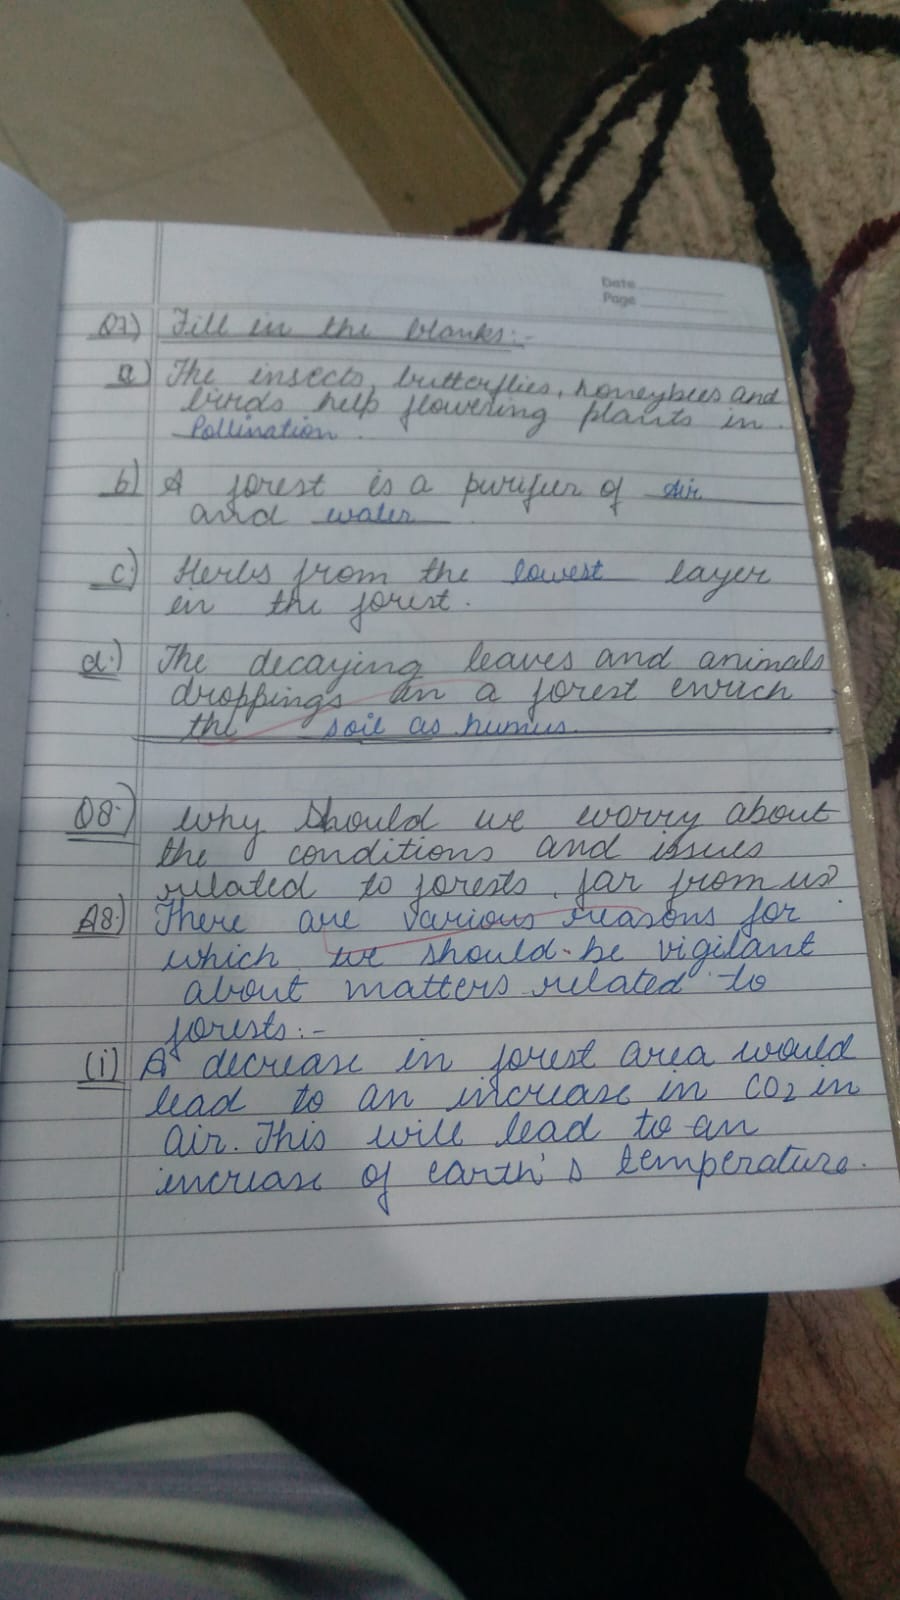 Date
Page
Q7) Fill in the blanks:-
a) The insects, butterflies, honeybees and
birds help flowering plants in
Pollination.
b) A forest is a purifier of Air
and water.
c) Herbs from the lowest layer
in the forest.
d.) The decaying leaves and animals
droppings in a forest enrich
the soil as humus.
Q8.) why should we worry about
the conditions and issues
related to forests far from us?
A8.) There are various reasons for
which we should be vigilant
about matters related to
forests:-
(i) A decrease in forest area would
lead to an increase in CO2 in
air. This will lead to an
increase of earth's temperature.